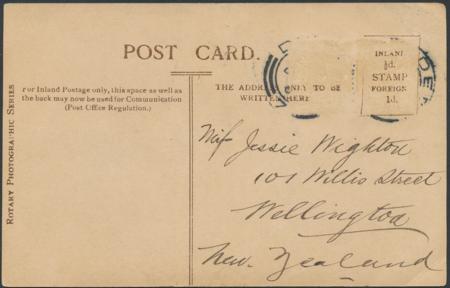 POST CARD.
For Inland Postage only, this space as well as
the back may now be used for Communication
(Post Office Regulation.)
THE ADDRESS ONLY TO BE
WRITTEN HERE
INLAND
½d.
STAMP
FOREIGN
1d.
ROTARY PHOTOGRAPHIC SERIES
Miss Jessie Wighton
101 Willis Street
Wellington
New Zealand